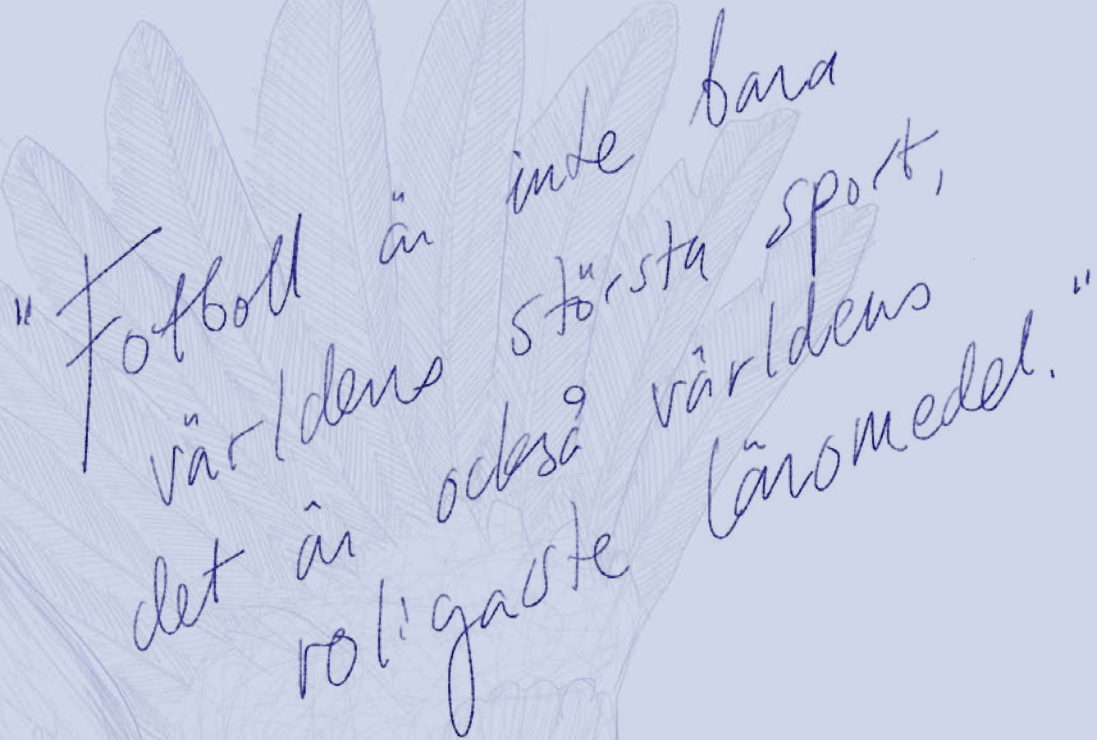 "Fotboll är inte bara
världens största sport,
det är också världens
roligaste läromedel."